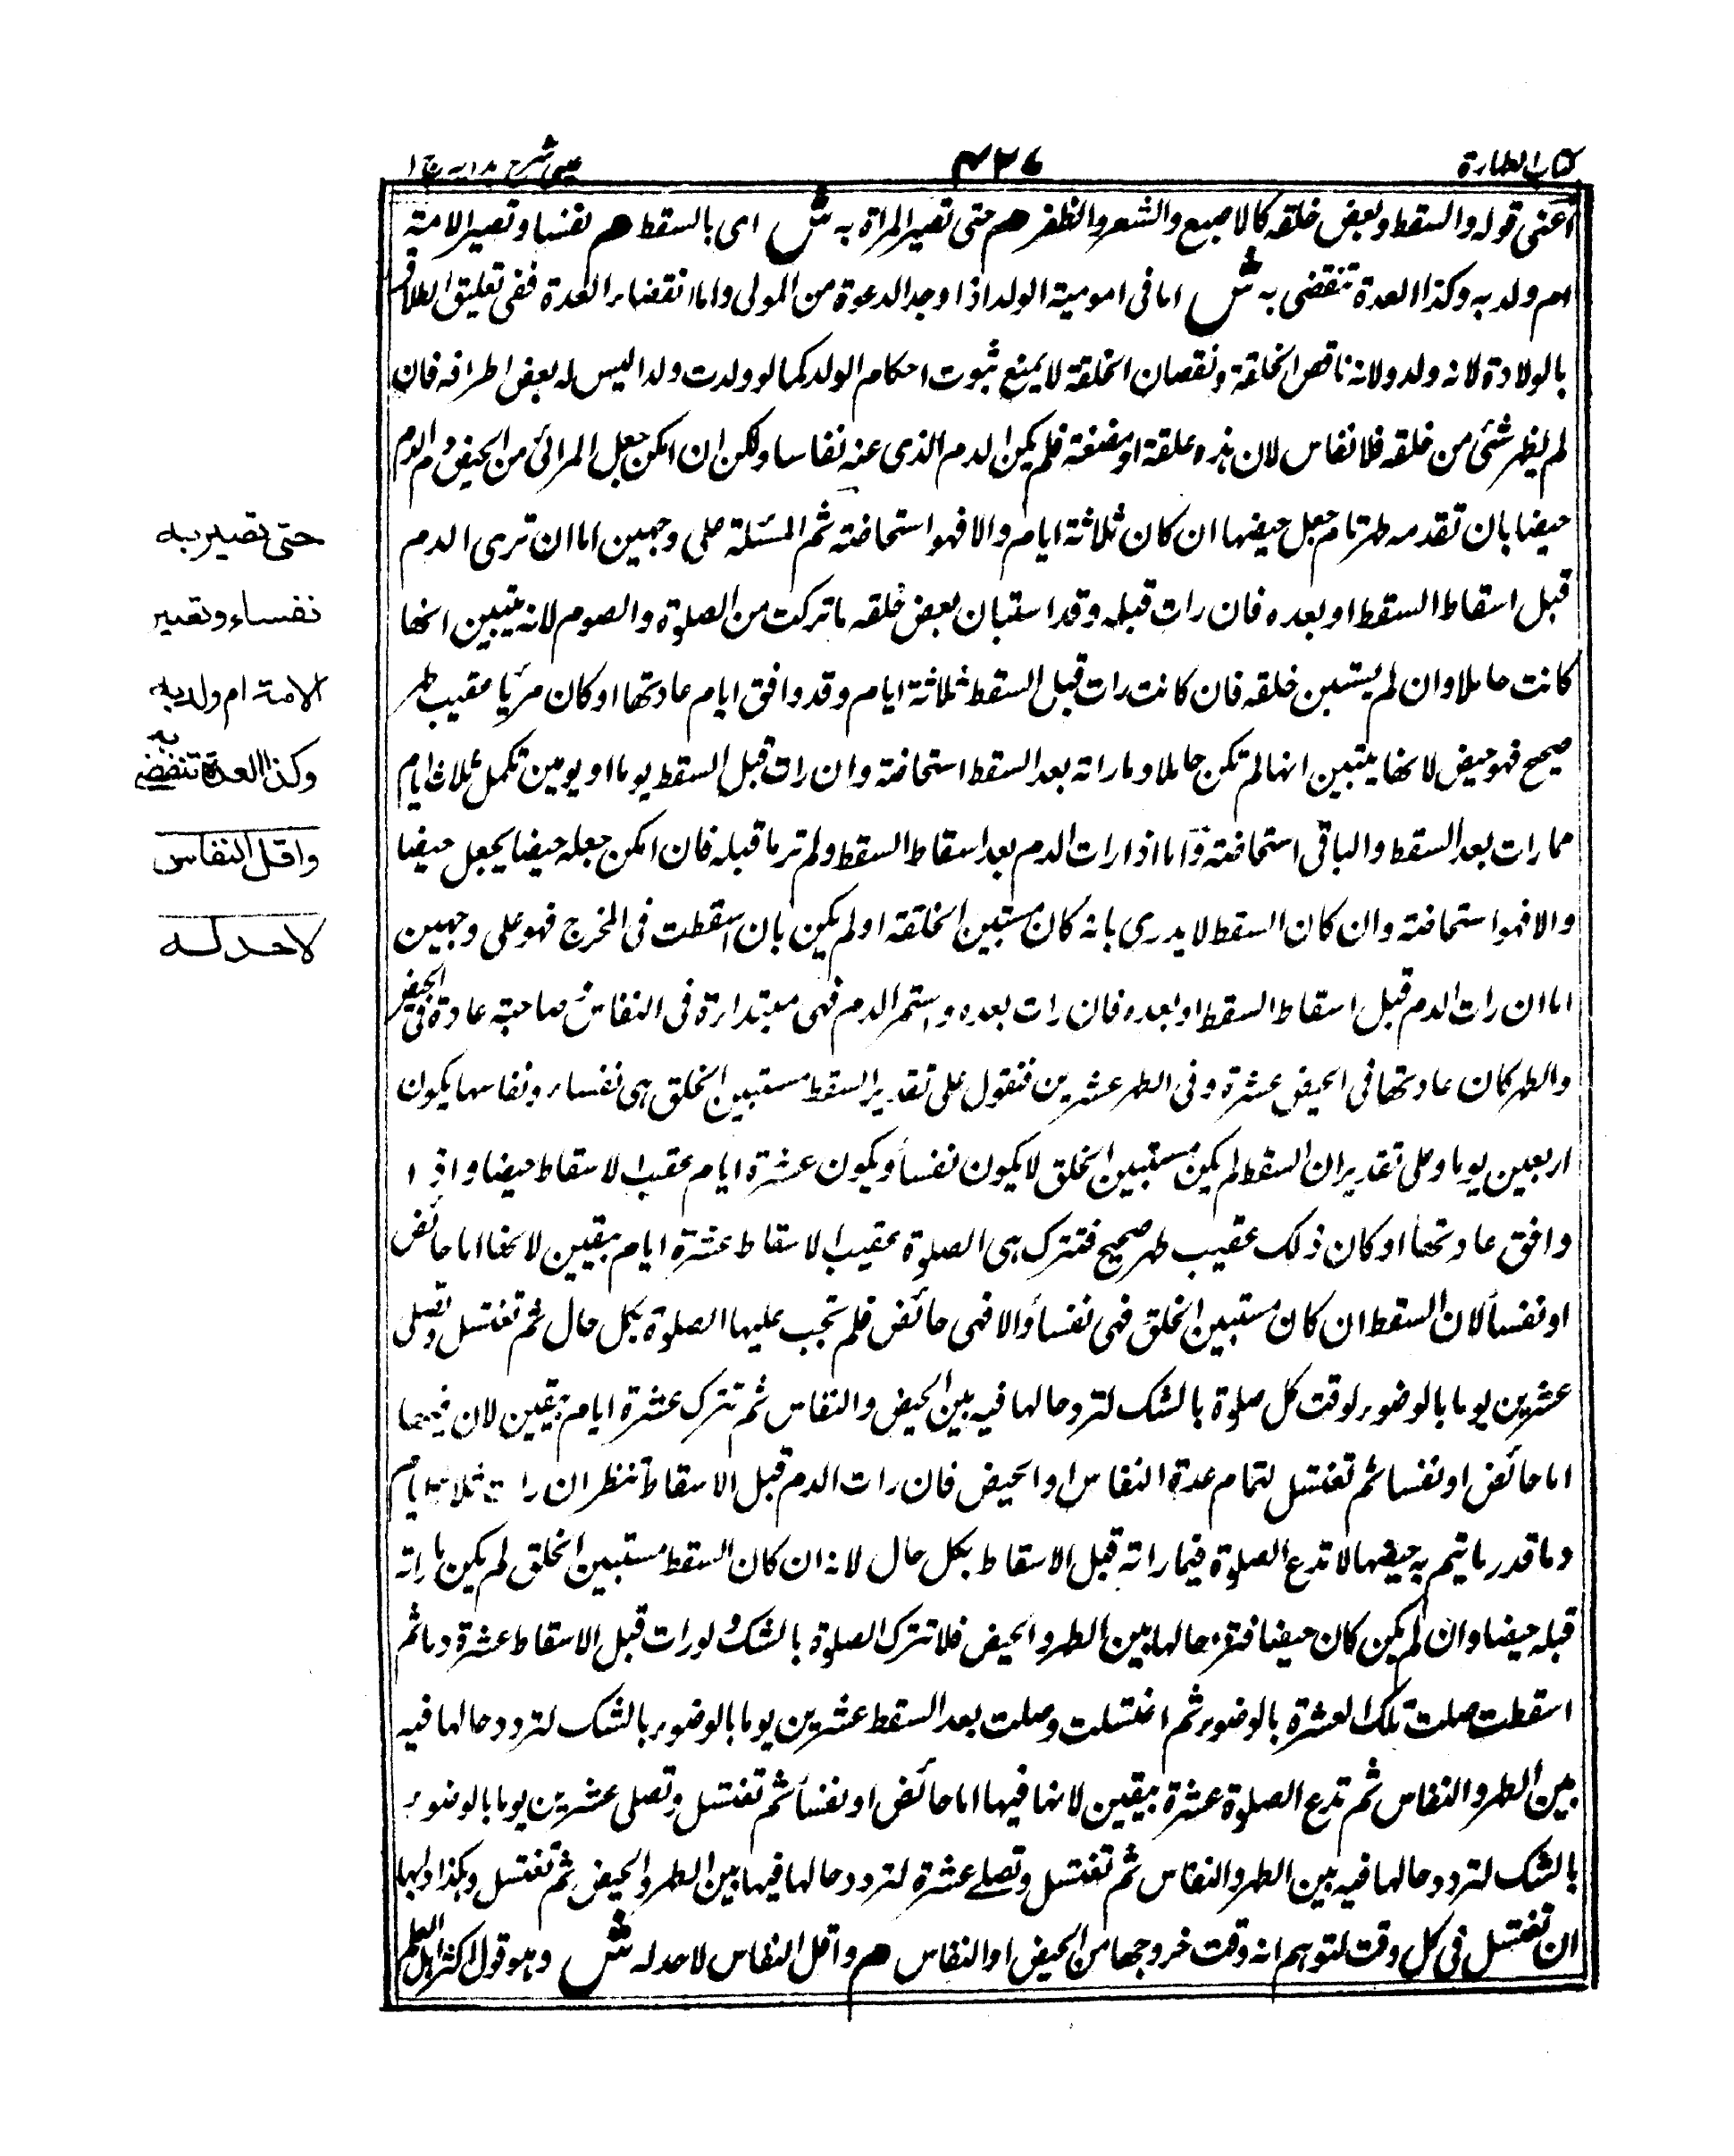 كتاب الطهارة
٤٢٦
عينى شرح هدايه ج ١
اعنى قوله والسقط وبعض خلقه كالاصبع والشعر والظفر هم حتى تصير المراة به ش اى بالسقط هم نفسا وتصير الامة
ام ولد به وكذا العدة تنقضى به ش اما فى امومية الولد اذا وجد الدعوة من المولى واما انقضاء العدة ففى تعليق الطلاق
بالولادة لانه ولد ولانه ناقص الخلقة ونقصان الخلقة لا يمنع ثبوت احكام الولد كما لو ولدت ولدا ليس له بعض اطرافه فان
لم يظهر شئ من خلقه فلا نفاس لان هذه علقة او مضغة فلم يكن الدم الذى عنه نفاسا ولكن ان امكن جعل المرائى من الحيض دم الدم
حيضا بان تقدمه طهر تام جعل حيضها ان كان ثلاثة ايام والا فهو استحاضة ثم المسئلة على وجهين اما ان ترى الدم
قبل اسقاط السقط او بعده فان رات قبله وقد استبان بعض خلقه ما تركت من الصلوة والصوم لانه يتبين انها
كانت حاملا وان لم يستبن خلقه فان كانت رات قبل السقط ثلاثة ايام وقد وافق ايام عادتها او كان مرئيا عقيب طهر
صحيح فهو حيض لانها يتبين انها لم تكن حاملا وما راته بعد السقط استحاضة وان رات قبل السقط يوما او يومين تكمل ثلاث ايام
مما رات بعد السقط والباقى استحاضة واما اذا رات الدم بعد اسقاط السقط ولم تر ما قبله فان امكن جعله حيضا يجعل حيضا
والا فهو استحاضة وان كان السقط لا يدرى بانه كان مستبين الخلقة او لم يكن بان اسقطت فى المخرج فهو على وجهين
اما ان رات الدم قبل اسقاط السقط او بعده فان رات بعده واستمر الدم فهى مبتداءة فى النفاس صاحبة عادة فى الحيض
والطهر كان عادتها فى الحيض عشرة وفى الطهر عشرين فنقول على تقدير السقط مستبين الخلق هى نفساء ونفاسها يكون
اربعين يوما وعلى تقدير ان السقط لم يكن مستبين الخلق لا يكون نفسا ويكون عشرة ايام عقيب الاسقاط حيضا واذا
وافق عادتها او كان ذلك عقيب طهر صحيح فتترك هى الصلوة عقيب الاسقاط عشرة ايام بيقين لانها اما حائض
او نفسا لان السقط ان كان مستبين الخلق فهى نفسا والا فهى حائض فلم تجب عليها الصلوة بكل حال ثم تغتسل وتصلى
عشرين يوما بالوضوء لوقت كل صلوة بالشك لتردد حالها فيه بين الحيض والنفاس ثم تترك عشرة ايام بيقين لان فيهما
اما حائض او نفسا ثم تغتسل لتمام عدة النفاس او الحيض فان رات الدم قبل الاسقاط تنظر ان رات ثلاثة ايام
دما قدر ما يتم به حيضها لا تدع الصلوة فيما راته قبل الاسقاط بكل حال لانه ان كان السقط مستبين الخلق لم يكن ما راته
قبله حيضا وان لم يكن كان حيضا فتردد حالها بين الطهر والحيض فلا تترك الصلوة بالشك ولو رات قبل الاسقاط عشرة دما ثم
اسقطت صلت تلك العشرة بالوضوء ثم اغتسلت وصلت بعد السقط عشرين يوما بالوضوء بالشك لتردد حالها فيه
بين الطهر والنفاس ثم تدع الصلوة عشرة بيقين لانها فيها اما حائض او نفسا ثم تغتسل وتصلى عشرين يوما بالوضوء
بالشك لتردد حالها فيه بين الطهر والنفاس ثم تغتسل وتصلے عشرة لتردد حالها فيها بين الطهر والحيض ثم تغتسل وهكذا دابها
ان تغتسل فى كل وقت لتوهم انه وقت خروجها من الحيض او النفاس هم واقل النفاس لا حد له ش وهو قول اكثر اهل العلم
حتى تصير به
نفساء وتصير
الامة ام ولد به
وكذا العدة تنقضى به
واقل النفاس
لا حد له